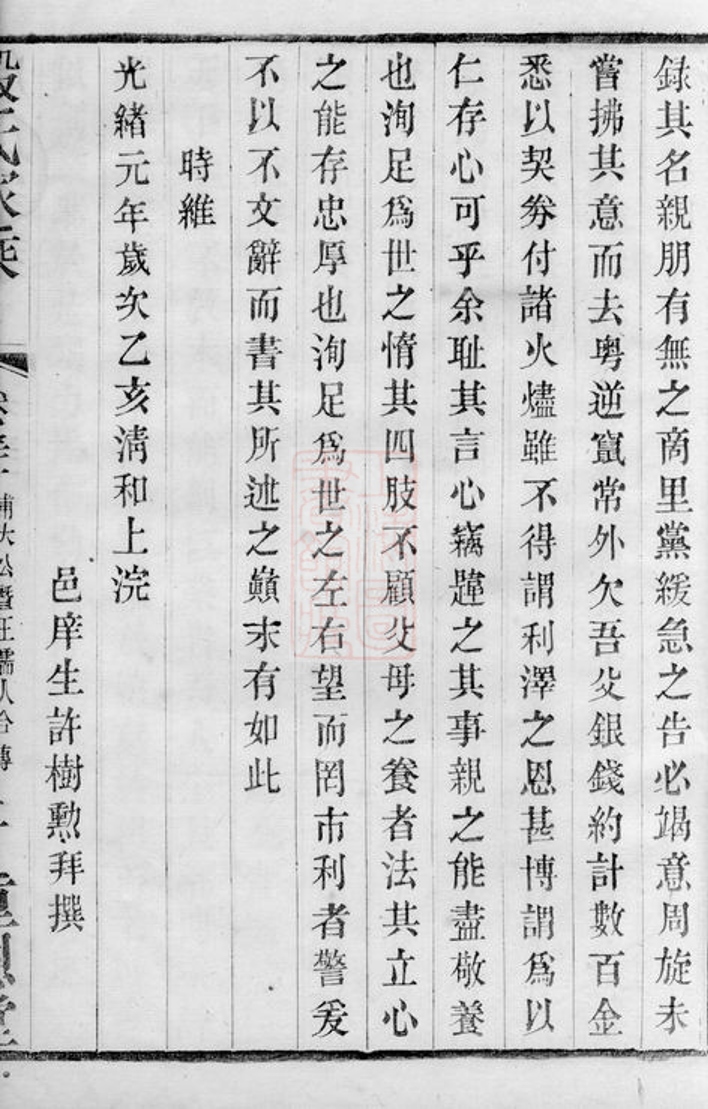 録其名親朋有無之啇里黨緩急之告必竭意周旋未
嘗拂其意而去粤逆竄常外欠吾父銀錢約計數百金
悉以契券付諸火燼雖不得謂利澤之恩甚博謂爲以
仁存心可乎余耻其言心竊韙之其事親之能盡敬養
也洵足爲世之惰其四肢不顧父母之養者法其立心
之能存忠厚也洵足爲世之左右望而罔市利者警爰
不以不文辭而書其所述之巔末有如此
時維
光緒元年歲次乙亥清和上浣
邑庠生許樹勲拜撰
氏家乘
大公暨汪孺人合傳